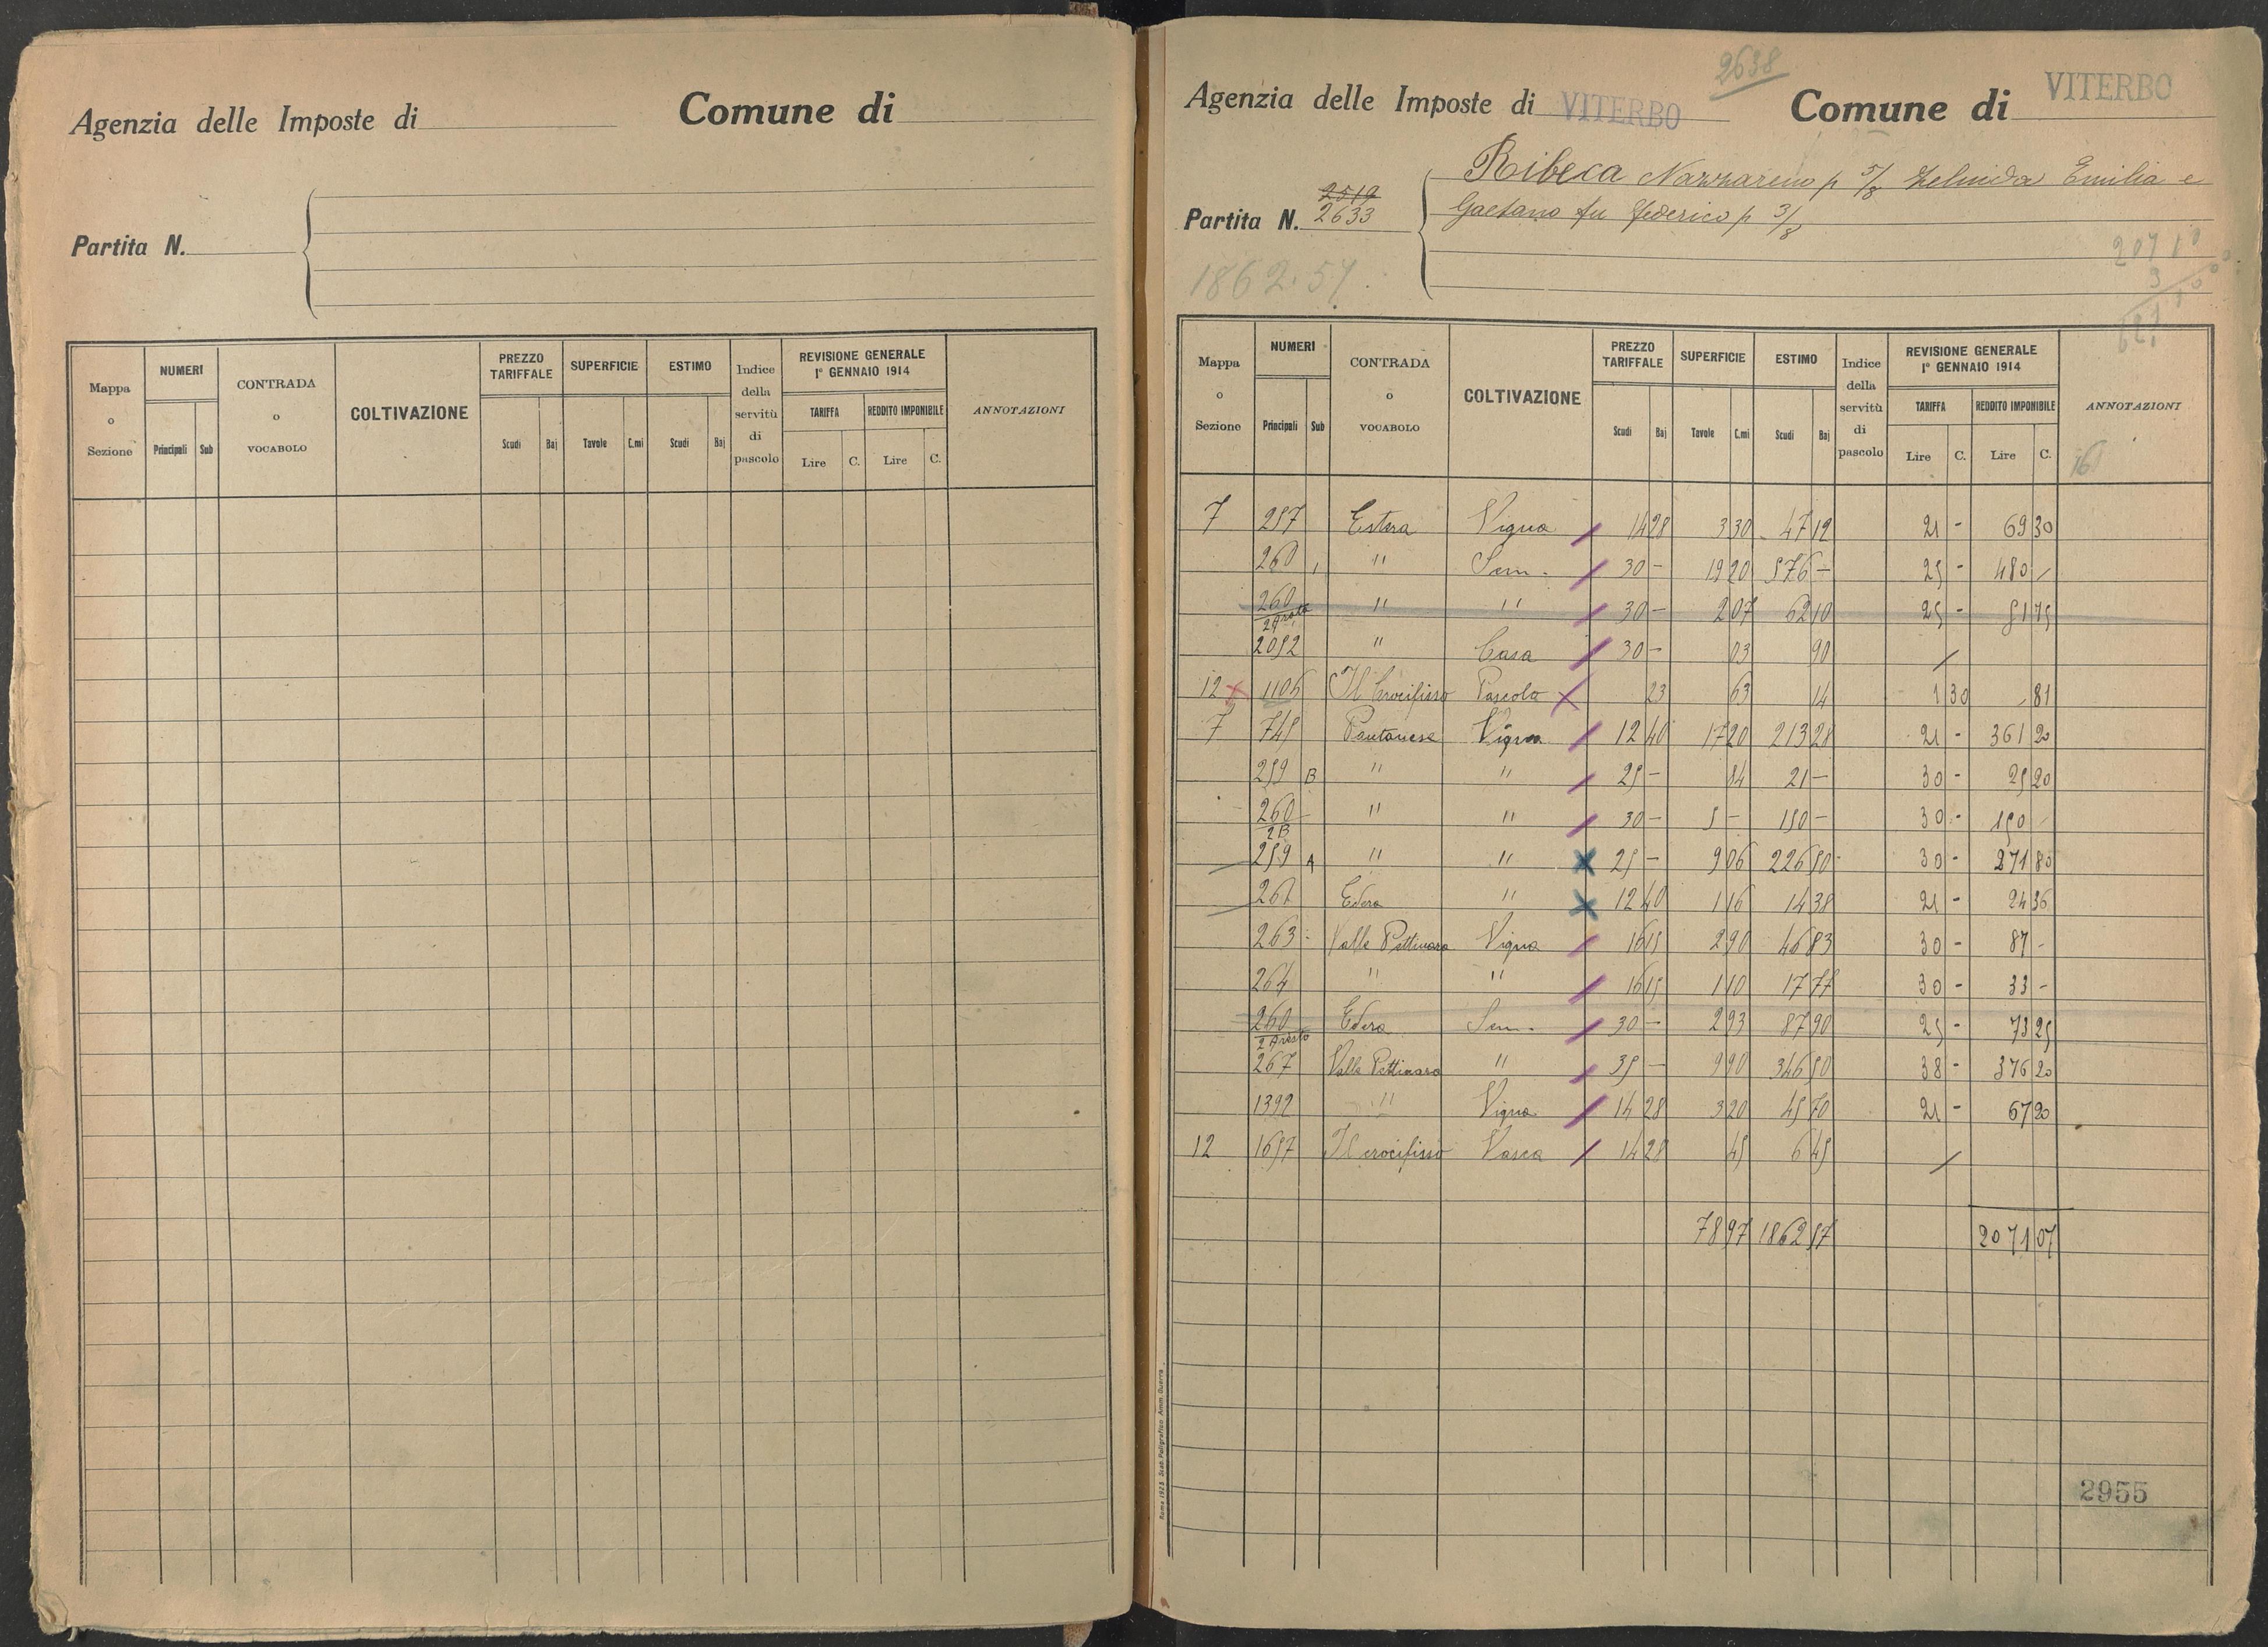 Agenzia delle Imposte di
Comune di
Partita N.
Mappa o Sezione
NUMERI
Principali Sub
CONTRADA o VOCABOLO
COLTIVAZIONE
PREZZO TARIFFALE
Scudi Baj
SUPERFICIE
Tavole C.mi
ESTIMO
Scudi Baj
Indice della servitù di pascolo
REVISIONE GENERALE 1° GENNAIO 1914
TARIFFA
Lire C.
REDDITO IMPONIBILE
Lire C.
ANNOTAZIONI
2638
Agenzia delle Imposte di VITERBO
Comune di VITERBO
Partita N. 2519
2633
Ribeca Nazzareno p 5/8 Zelinda Emilia e
Gaetano fu Federico p 3/8
1862.57
Mappa o Sezione
NUMERI
Principali Sub
CONTRADA o VOCABOLO
COLTIVAZIONE
PREZZO TARIFFALE
Scudi Baj
SUPERFICIE
Tavole C.mi
ESTIMO
Scudi Baj
Indice della servitù di pascolo
REVISIONE GENERALE 1° GENNAIO 1914
TARIFFA
Lire C.
REDDITO IMPONIBILE
Lire C.
ANNOTAZIONI
7 257 Vigna 14 28 3 30 47 12 21 - 69 30
260 1 " Sem. 30 - 19 20 576 - 25 - 480 -
260 2A " " 30 - 2 07 62 10 25 - 51 75
2052 " Casa 30 - 03 90
12 1105 Il Crocifisso Pascolo 23 63 14 1 30 - 81
7 745 Pantanese Vigna 12 40 17 20 213 28 21 - 361 20
259 B " " 25 - 84 21 - 30 - 25 20
260 2B " " 30 - 5 - 150 - 30 - 150 -
259 A " " 25 - 9 06 226 50 30 - 271 80
261 Edera " 12 40 1 16 14 38 21 - 24 36
263 Valle Pettinara Vigna 16 15 2 90 46 83 30 - 87 -
264 " " 16 15 1 10 17 77 30 - 33 -
260 2A resto Edera Sem. 30 - 2 93 87 90 25 - 73 25
267 Valle Pettinara " 35 - 9 90 346 50 38 - 376 20
1392 " Vigna 14 28 3 20 45 70 21 - 67 20
12 1657 Il crocifisso Vasca 14 28 45 6 45
78 97 1862 57 2071 07
2955
Roma 1923 Stab. Poligrafico Amm. Guerra